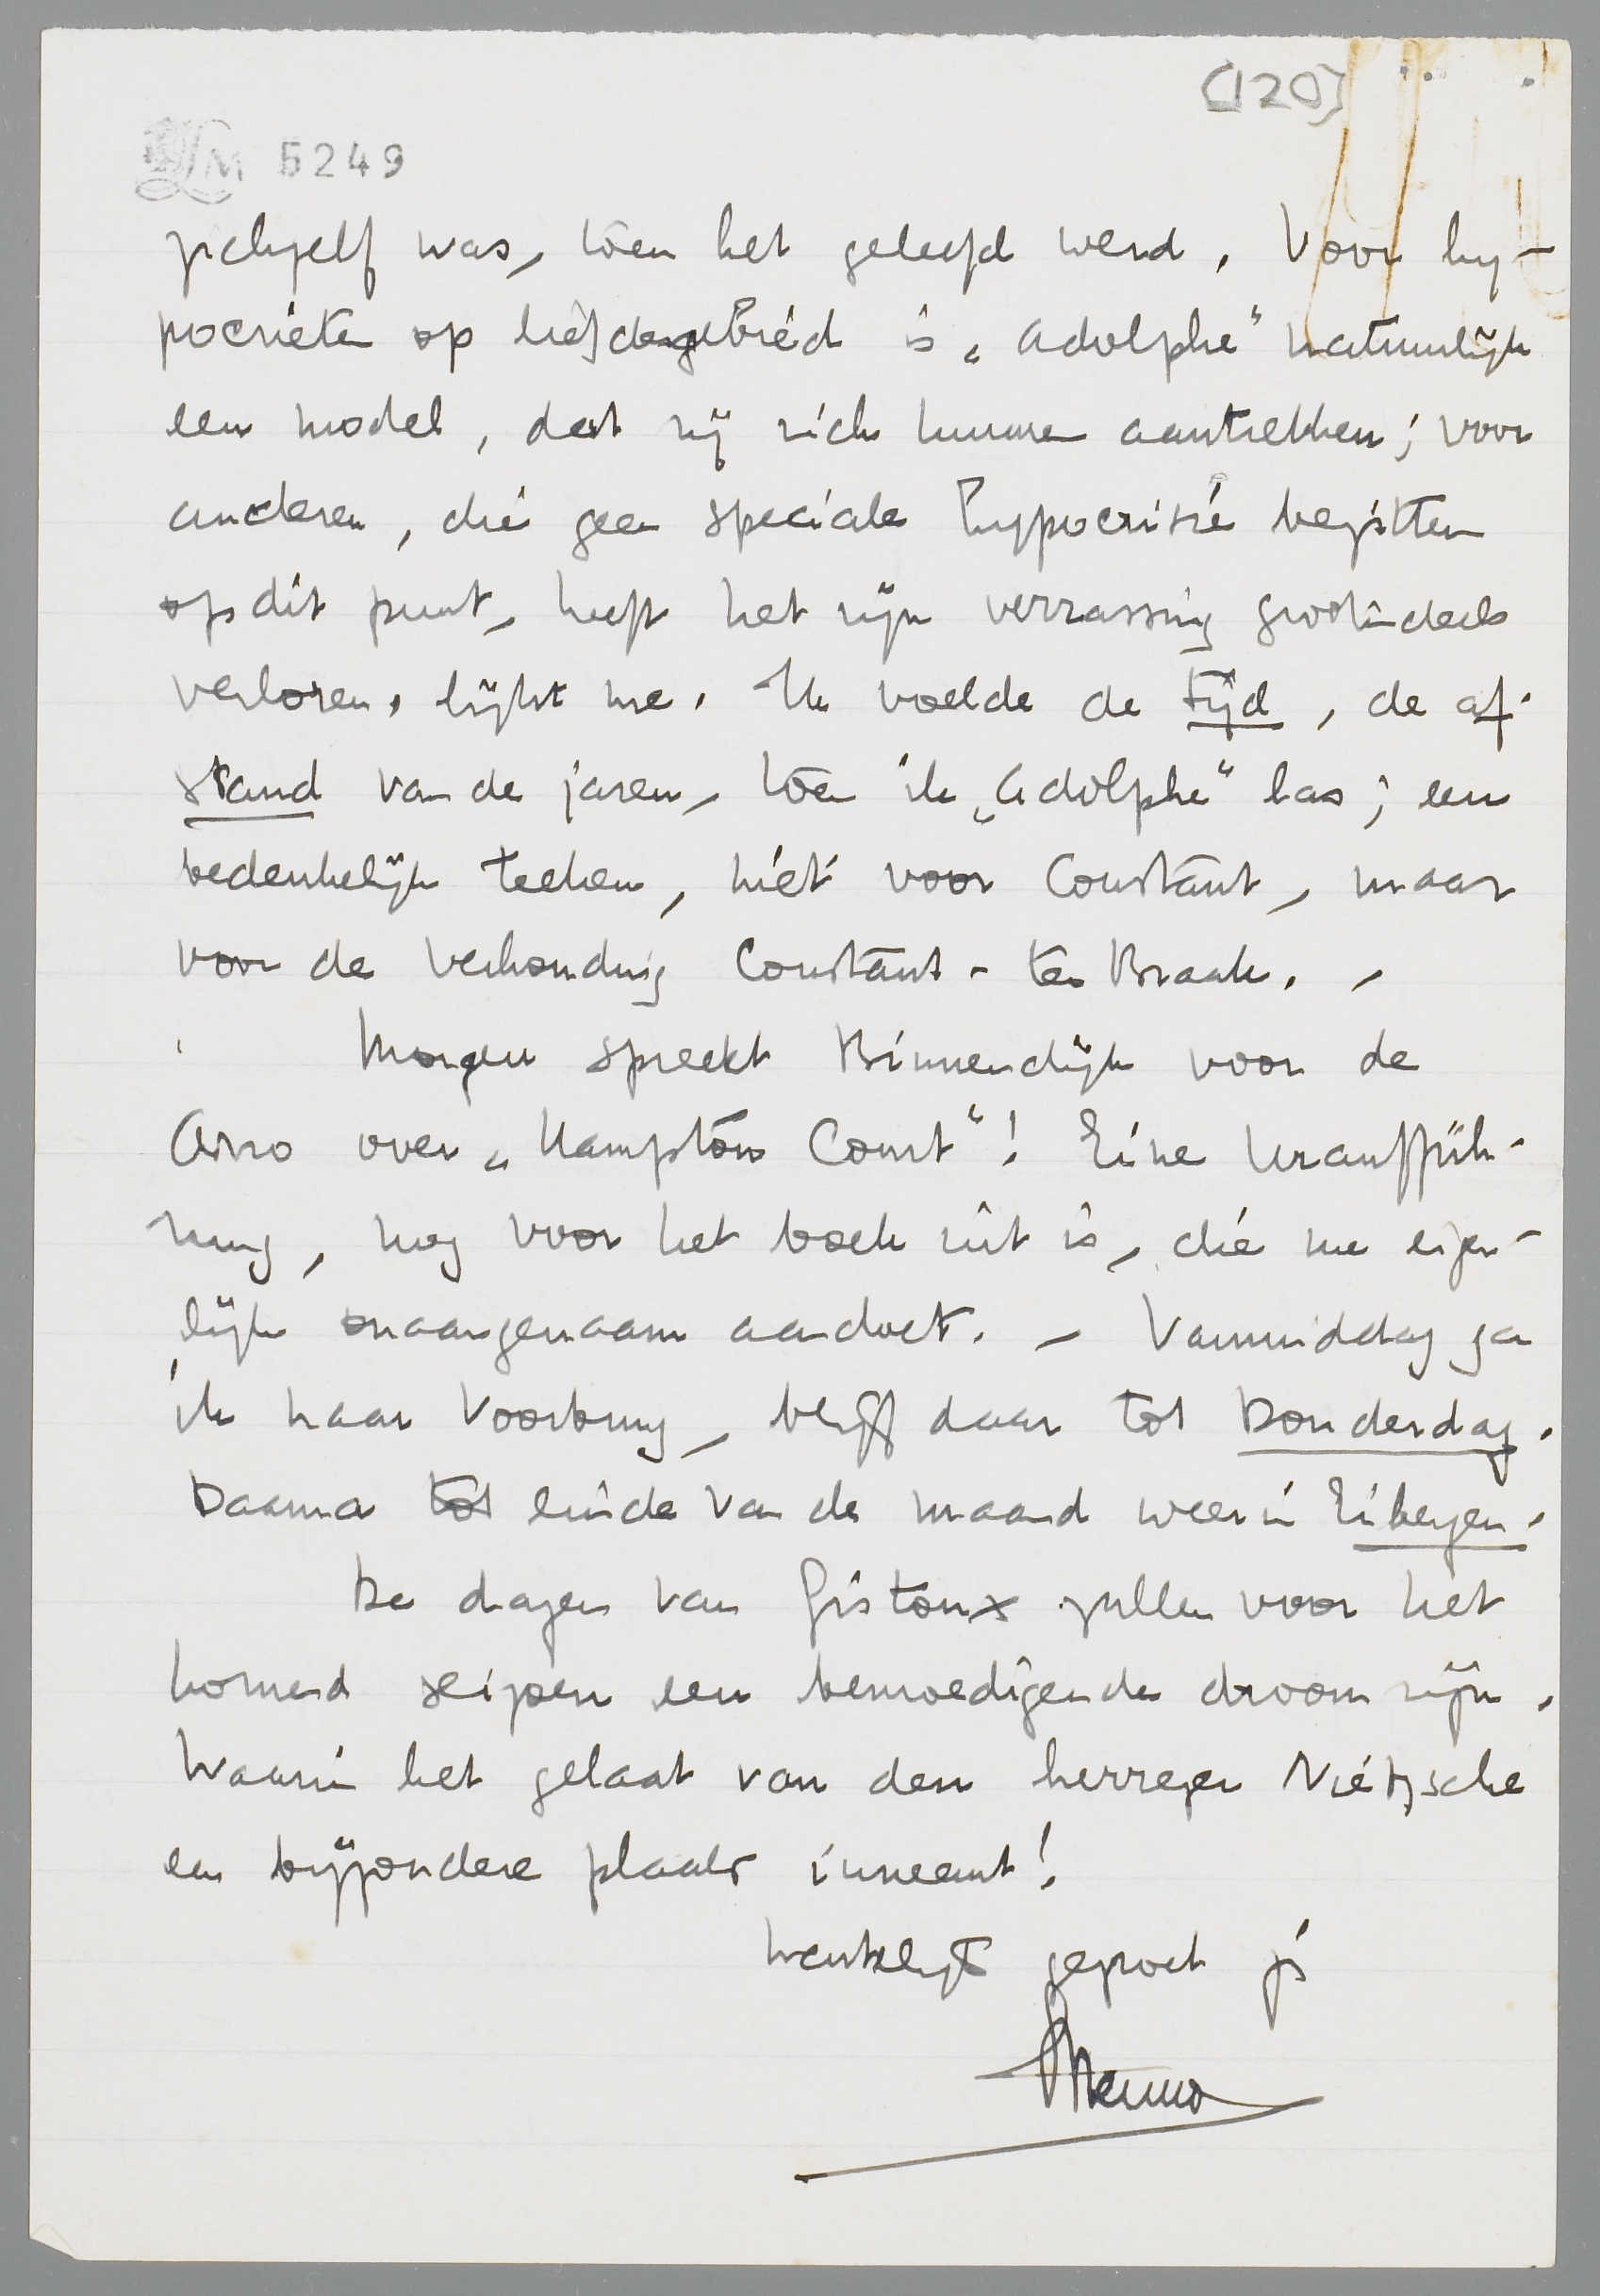 (120)
LM 5249
zichzelf was, toen het geleefd werd. Voor hy-
pocrieten op liefdesgebied is „Adolphe" natuurlijk
een model, dat zij zich kunnen aantrekken; voor
anderen, die geen speciale hypocrisie bezitten
op dit punt, heeft het zijn verrassing grootendeels
verloren, lijkt me. Ik voelde de tijd, de af-
stand van de jaren, toen ik „Adolphe" las; een
bedenkelijk teeken, niet voor Constant, maar
voor de verhouding Constant - ter Braak. -
Morgen spreekt Binnendijk voor de
Avro over „Hampton Court"! Eine Urauffüh-
rung, nog voor het boek uit is, die me eigen-
lijk onaangenaam aandoet. - Vanmiddag ga
ik naar Voorburg, blijf daar tot Donderdag.
Daarna tot einde van de maand weer in Eibergen.
De dagen van Gistoux zullen voor het
komend seizoen een bemoedigende droom zijn,
waarin het gelaat van den herrezen Nietzsche
een bijzondere plaats inneemt!
hartelijk gegroet je
Menno